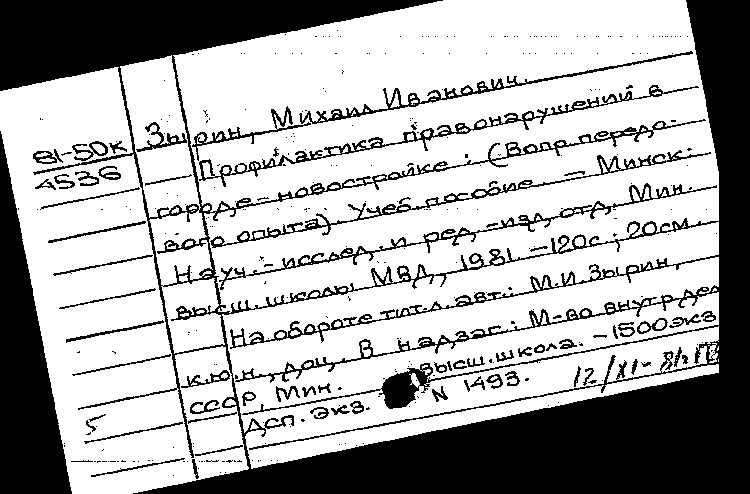 81-50к
4536
Зырин, Михаил Иванович.
Профилактика правонарушений в
городе-новостройке: (Вопр. передо-
вого опыта). Учеб. пособие. – Минск:
Науч.-исслед. и ред.-изд. отд. Мин.
высш. школы МВД, 1981. – 120с.; 20см.
На обороте тит. л. авт.: М.И. Зырин,
к.ю.н., доц. В надзаг.: М-во внутр. дел
СССР, Мин. высш. школа. – 1500 экз
Дсп. экз. N 1493.
12/XI-81г
5